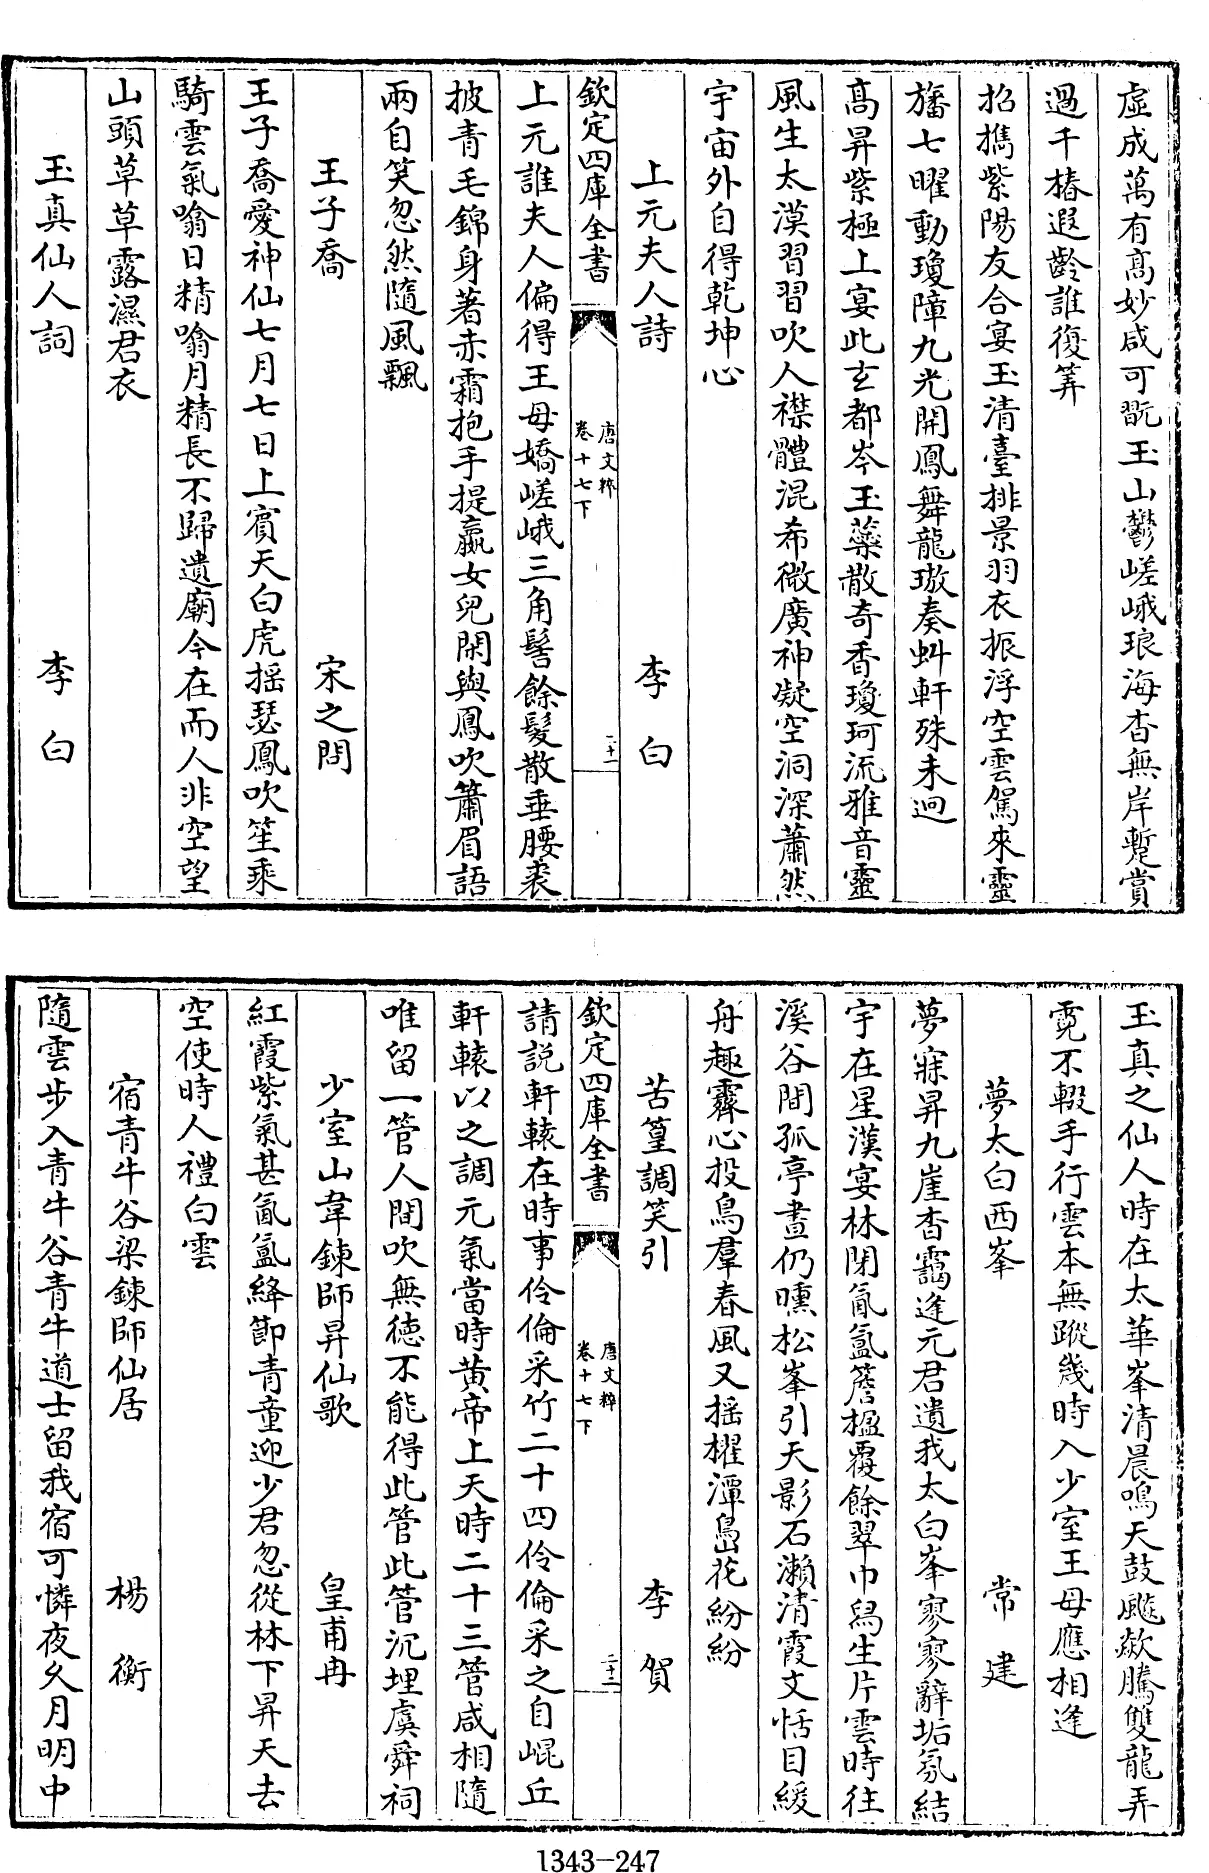 虛成萬有髙妙咸可翫玉山鬱嵯峨琅海杳無岸蹔賞
過千椿遐齡誰復筭
招攜紫陽友合宴玉清臺排景羽衣振浮空雲駕來靈
旛七曜動瓊障九光開鳳舞龍璈奏虯軒殊未迴
髙昇紫極上宴此𤣥都岑玉蘂散奇香瓊珂流雅音靈
風生太漠習習吹人襟體混希微廣神凝空洞深蕭然
宇宙外自得乾坤心
上元夫人詩 李白
欽定四庫全書 唐文粹 卷十七下 二十一
上元誰夫人偏得王母嬌嵯峨三角髻餘髪散垂腰裘
披青毛錦身著赤霜抱手提嬴女兒閑與鳳吹簫眉語
兩自笑忽然隨風飄
王子喬 宋之問
王子喬愛神仙七月七日上賔天白虎揺瑟鳳吹笙乘
騎雲氣噏日精噏月精長不歸遺廟今在而人非空望
山頭草草露濕君衣
玉真仙人詞 李白
玉真之仙人時在太華峯清晨鳴天鼓飈欻騰雙龍弄
電不輟手行雲本無蹤幾時入少室王母應相逢
夢太白西峯 常建
夢寐昇九崖杳靄逢元君遺我太白峯寥寥辭垢氛結
宇在星漢宴林閉氤氲簷楹覆餘翠巾舄生片雲時往
溪谷間孤亭晝仍曛松峯引天影石瀨清霞文恬目緩
舟趣霽心投鳥羣春風又揺櫂潭島花紛紛
苦篁調笑引 李賀
欽定四庫全書 唐文粹 卷十七下 二十二
請説軒轅在時事伶倫采竹二十四伶倫采之自崐丘
軒轅以之調元氣當時黄帝上天時二十三管咸相隨
唯留一管人間吹無德不能得此管此管沉埋虞舜祠
少室山韋鍊師昇仙歌 皇甫冉
紅霞紫氣甚氤氲絳節青童迎少君忽從林下昇天去
空使時人禮白雲
宿青牛谷梁鍊師仙居 楊衡
隨雲步入青牛谷青牛道士留我宿可憐夜久月明中
1343-247